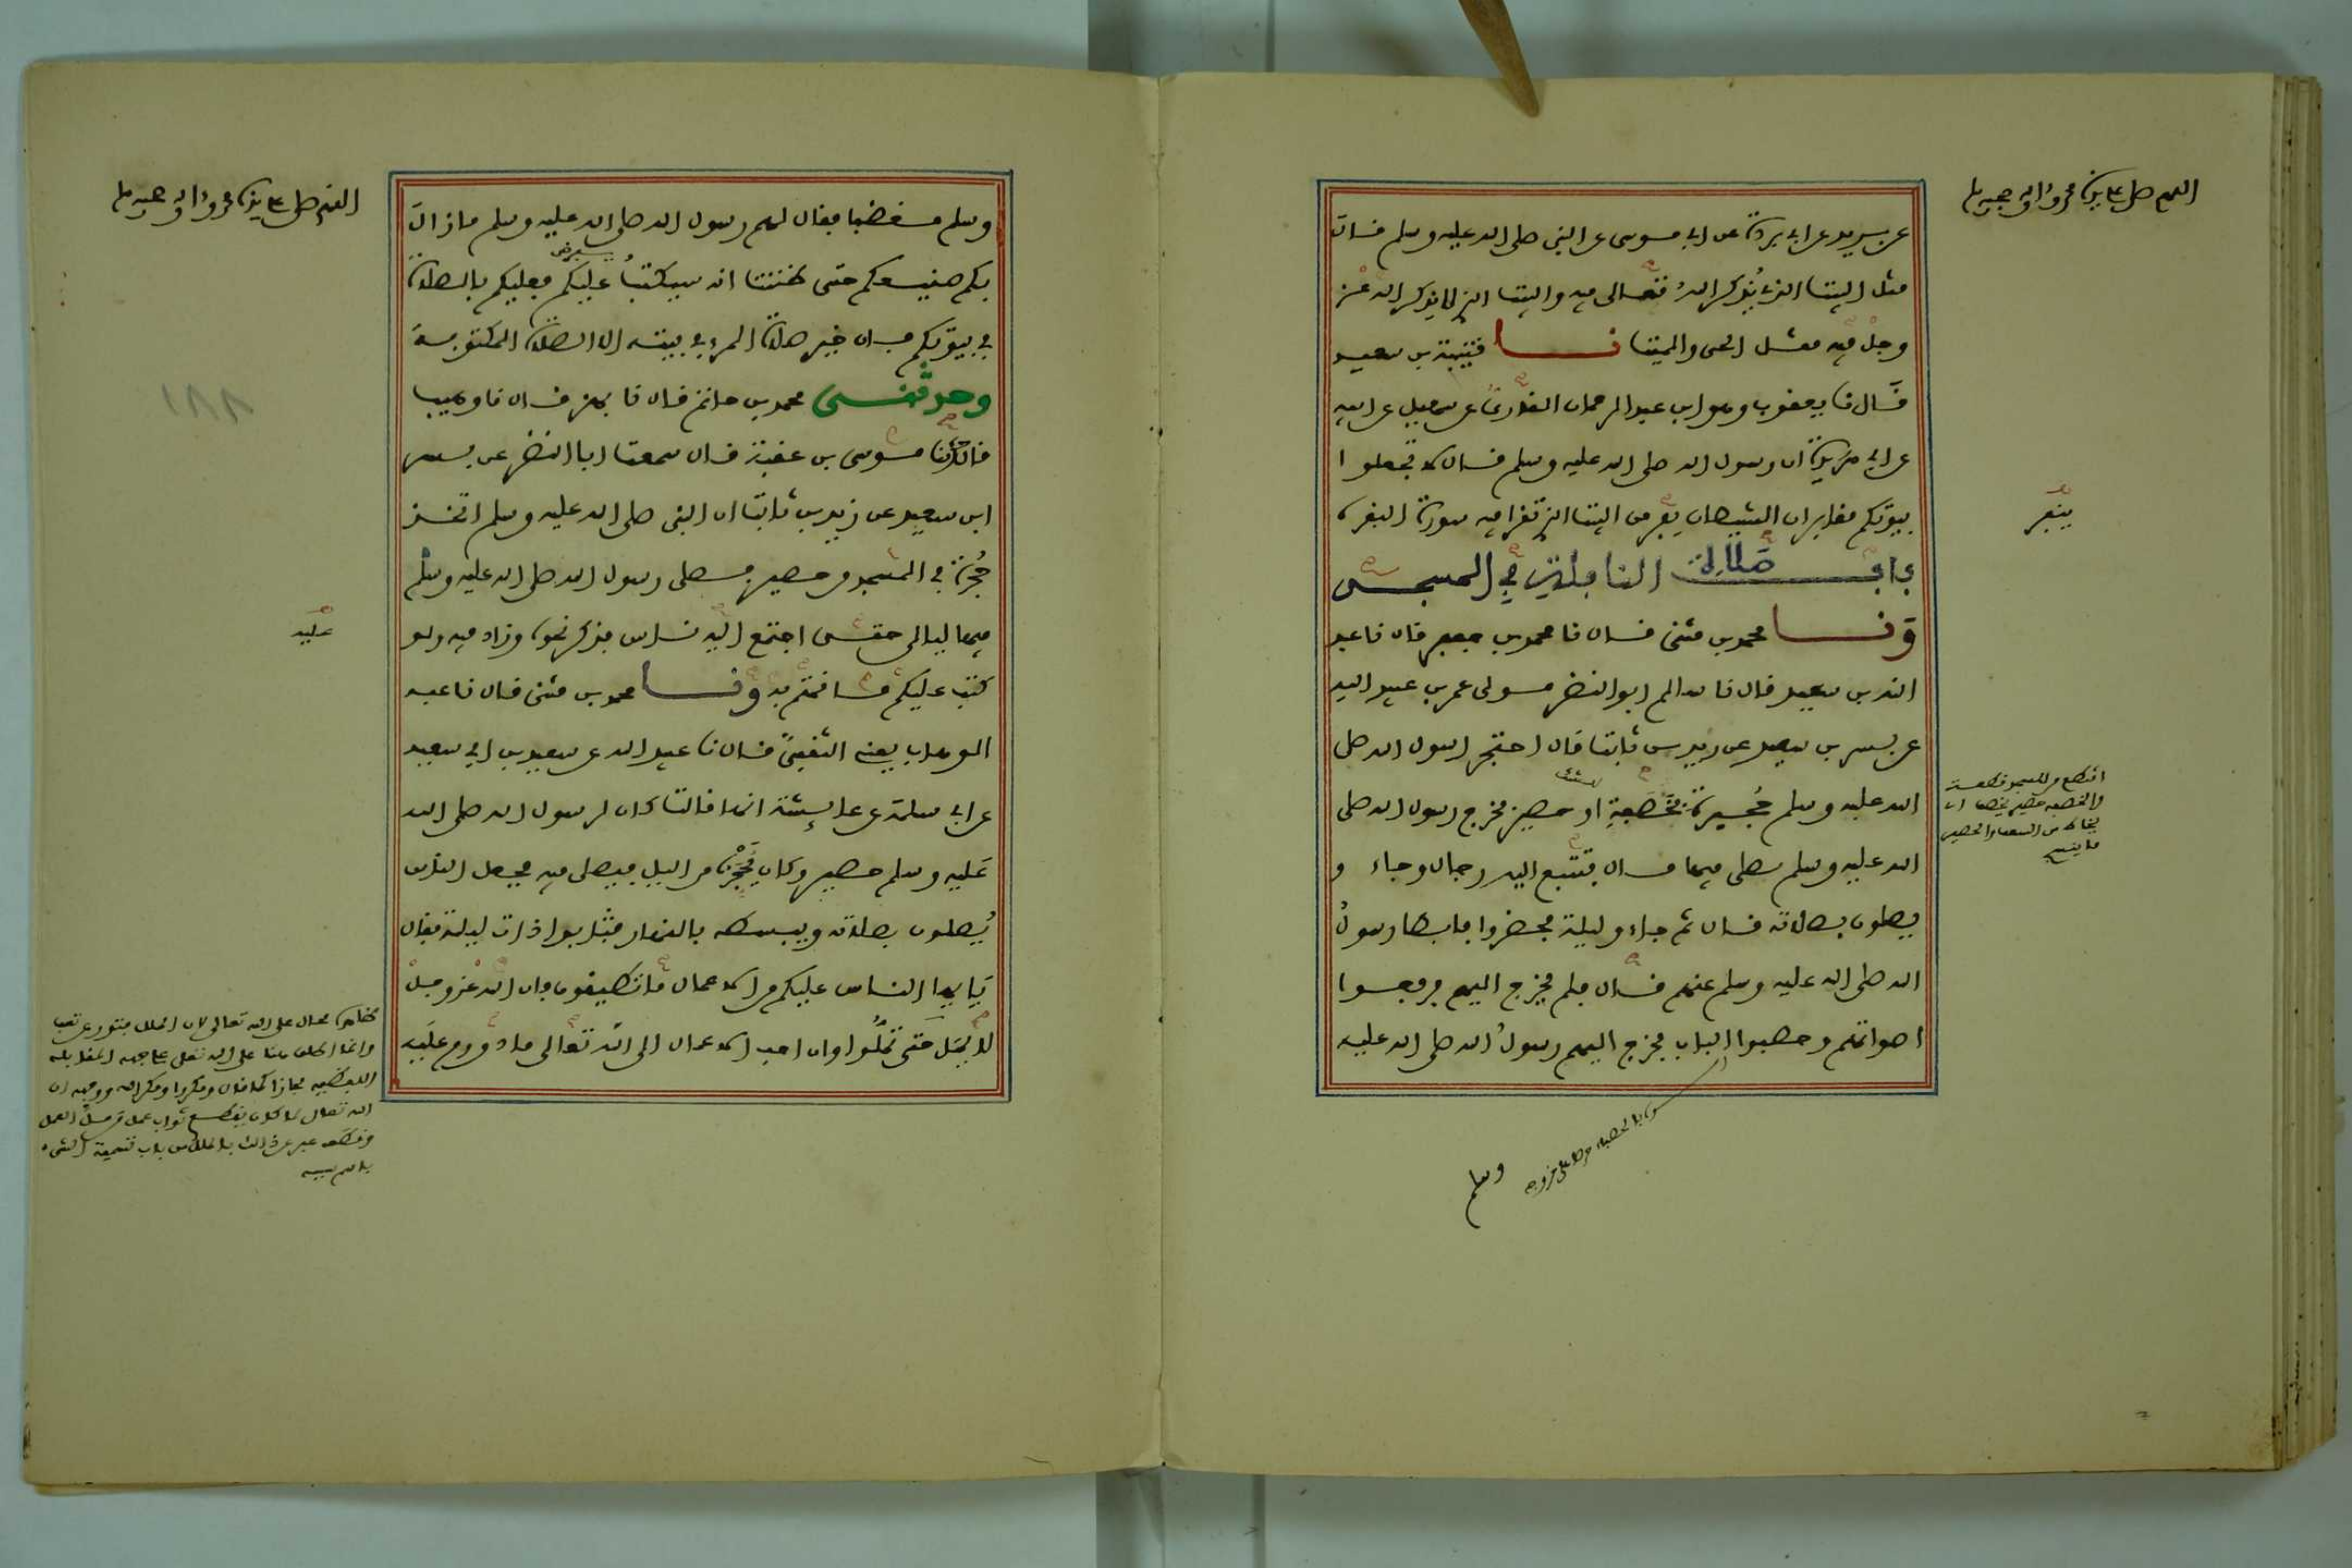 اللهم صل على سيدنا محمد وءاله وصحبه وسلم
عن بريد عن ابي بردة عن ابي موسى عن النبي صلى الله عليه وسلم قال
مثل البيت الذي يُذكر اللهُ تعالى فيه والبيت الذي لا يذكر الله عز
وجل فيه مثل الحي والميت نا قتيبة بن سعيد
قال نا يعقوب وهو ابن عبد الرحمان القاري عن سهيل عن ابيه
عن ابي هريرة ان رسول الله صلى الله عليه وسلم قال لا تجعلوا
بيوتكم مقابر ان الشيطان يفر من البيت الذي تقرا فيه سورة البقرة
ينفر
باب صلاة النافلة في المسجد
ونا محمد بن مثنى قال نا محمد بن جعفر قال نا عبد
الله بن سعيد قال نا سالم ابو النضر مولى عمر بن عبيد الله
عن بسر بن سعيد عن زيد بن ثابت قال احتجر رسول الله صلى
الله عليه وسلم حُجيرة بخَصَفةٍ او حصير فخرج رسول الله صلى
الله عليه وسلم يصلي فيها قال فتتبع اليه رجال وجاءو
يصلون بصلاته قال ثم جاءو ليلة فحضروا فابطا رسولُ
الله صلى الله عليه وسلم عنهم قال فلم يخرج اليهم فرفعوا
اصواتهم وحصبوا الباب فخرج اليهم رسولُ الله صلى الله عليه
وسلم
اللهم صل على سيدنا محمد وءاله وصحبه وسلم
وسلم مغضبا فقال لهم رسول الله صلى الله عليه وسلم مازال
بكم صنيعكم حتى ظننت انه سيكتبُ عليكم فعليكم بالصلاة
في بيوتكم فان خير صلاة المرء في بيته الا الصلاة المكتوبة
وحدثني محمد بن حاتم قال نا بهز قال نا وهيب
قال نا موسى بن عقبة قال سمعت ابا النضر عن بسر
ابن سعيد عن زيد بن ثابت ان النبي صلى الله عليه وسلم اتخذ
حُجرة في المسجد من حصير فصلى رسول الله صلى الله عليه وسلم
فيها ليالي حتى اجتمع اليه ناس فذكر نحوه وزاد فيه ولو
عليه
كتب عليكم ما قمتم به ونا محمد بن مثنى قال نا عبد
الوهاب يعني الثقفي قال نا عبيد الله عن سعيد بن ابي سعيد
عن ابي سلمة عن عايشة انها قالت كان لرسول الله صلى الله
عليه وسلم حصير وكان يحجره من الليل فيصلي فيه فجعل الناس
يُصلون بصلاته ويبسطه بالنهار فثابوا ذات ليلة فقال
يا ايها الناس عليكم من الاعمال ما تطيقون فان الله عز وجل
لا يمل حتى تملُّوا وان احب الاعمال الى الله تعالى ما دووم عليه
١٨٨